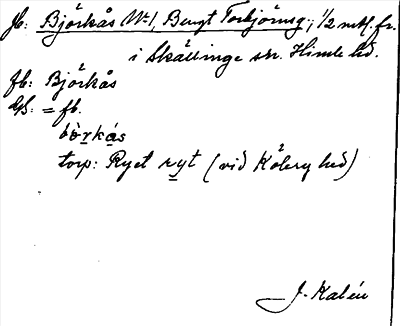 Jb: Björkås No 1, Bengt Torbjörnsg.; 1/2 mtl. fr.
i Skällinge sn. Himle hd.
fb: Björkås
Uf: = fb.
bö̀rkås
torp: Ryet ryt (vid Köbergs hed)
J. Kalén